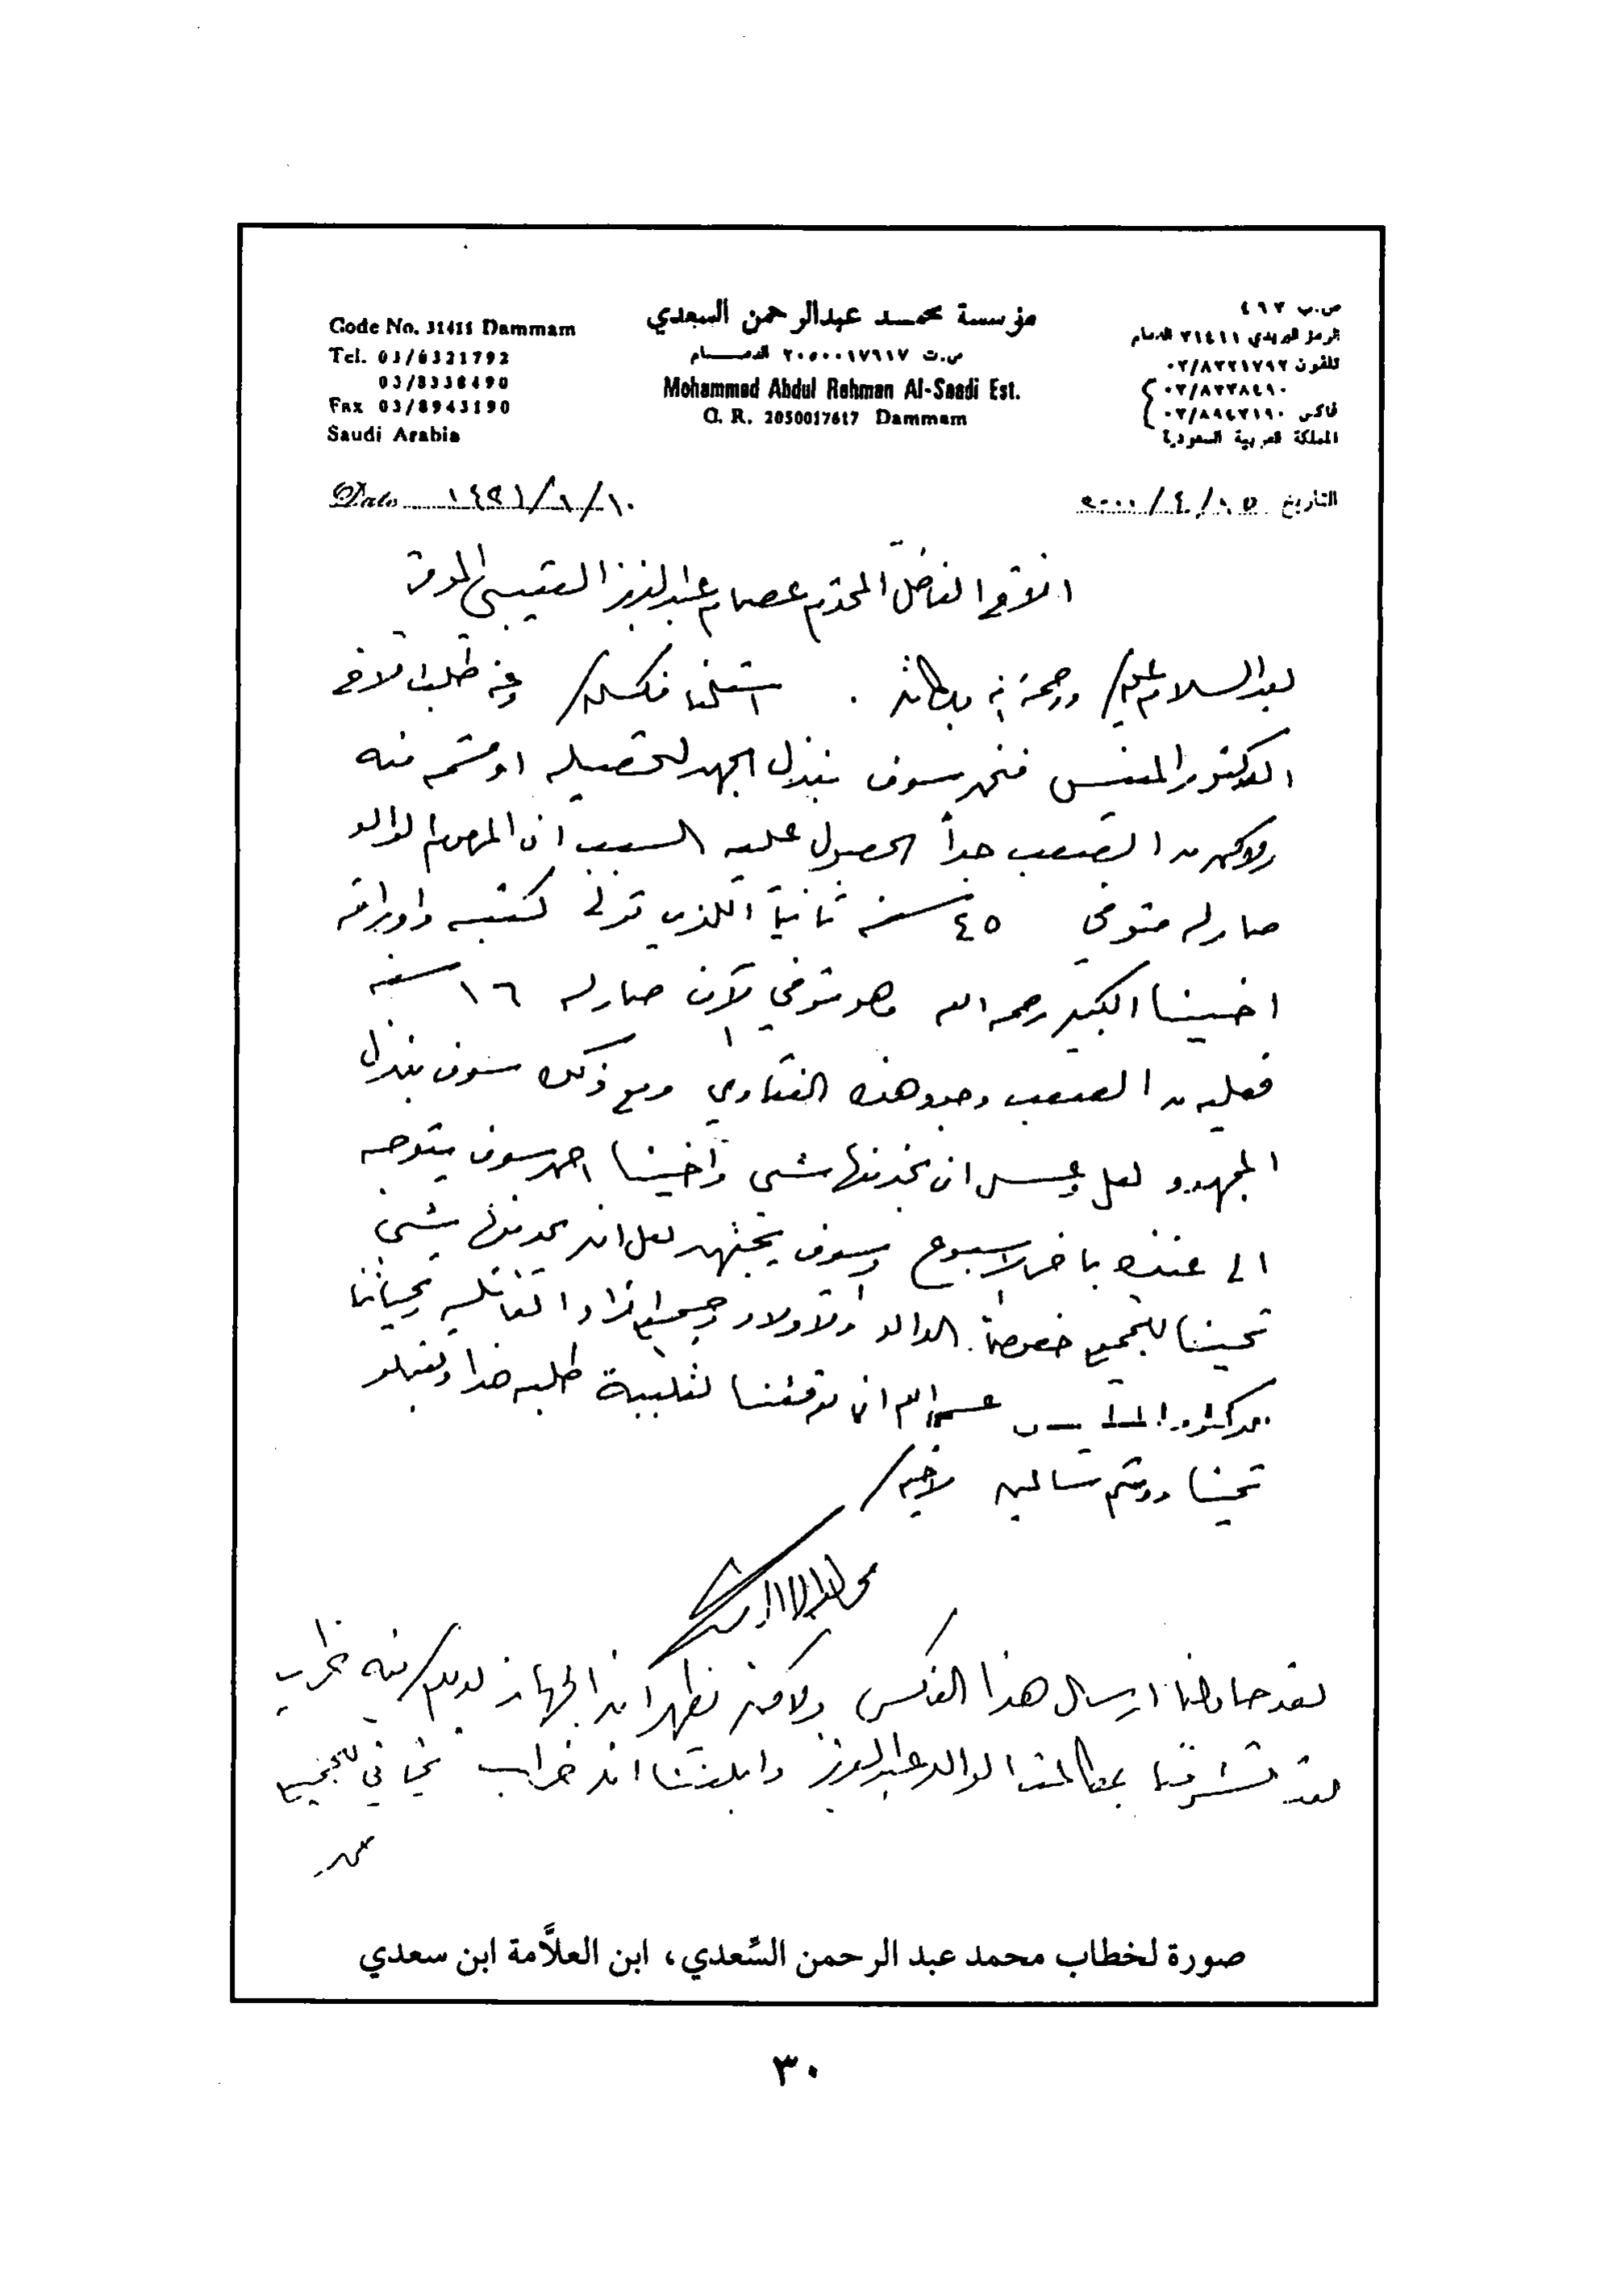 ص.ب ٤٦٣
الرمز البريدي ٣١٤١١ الدمام
تلفون ٠٣/٨٣٢١٧٩٢
٠٣/٨٣٣٨٤٩٠
فاكس ٠٣/٨٩٤٣١٩٠
المملكة العربية السعودية
مؤسسة محمد عبدالرحمن السعدي
س.ت ٢٠٥٠٠١٧٦١٧ الدمام
Mohammed Abdul Rahman Al-Saadi Est.
C. R. 2050017617 Dammam
Code No. 31411 Dammam
Tel. 03/8321792
03/8338490
Fax 03/8943190
Saudi Arabia
التاريخ ١٥/٤/٢٠٠٠
Date ١٤٢١/١/١٠
الاخ الفاضل المحترم عصام عبدالعزيز الموقر
بعد السلام عليكم ورحمة الله وبركاته . استلمنا فكسكم وعن طلب الاخ
الدكتور فنحن سوف نبذل الجهد لتحصيله او قسم منه
ولاكن من الصعب جداً الحصول عليه السبب ان المرحوم الوالد
صار له متوفي ٤٥ سنه ثانياً الذي تولى كتبه واوراقه
اخينا الكبير رحمه الله وهو متوفي الآن صار له ١٦ سنه
فعليه من الصعب وجود هذه الفتاوي ومع ذلك سوف نبذل
المجهود لعل وعسى ان نجد منها شي وأخينا احمد سوف يتوجه
الى عنيزه باخر الاسبوع وسوف يجتهد لعل ان يجد منها شي
تحيتنا للجميع خصوصاً الوالد والاولاد وجميع افراد العائله وتحياتنا
عسى الله ان يوفقنا لتلبية طلبه هذا وتقبلو
تحيتنا ودمتم سالمين لاخيكم
لقد حاولنا ارسال هذا الفاكس ولاكن يظهر ان الجهاز لديكم فيه خراب
لقد تشرفنا بمكالمة الوالد عبدالعزيز وابلغنا انه خراب تحياتي للجميع
محمد
صورة لخطاب محمد عبد الرحمن السِّعدي، ابن العلاَّمة ابن سعدي
٣٠